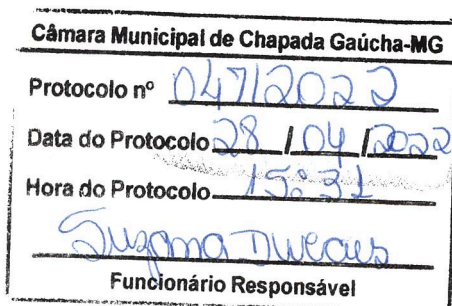 Câmara Municipal de Chapada Gaúcha-MG
Protocolo nº 047/2022
Data do Protocolo 28 / 04 / 2022
Hora do Protocolo 15:31
Suzana
Funcionário Responsável